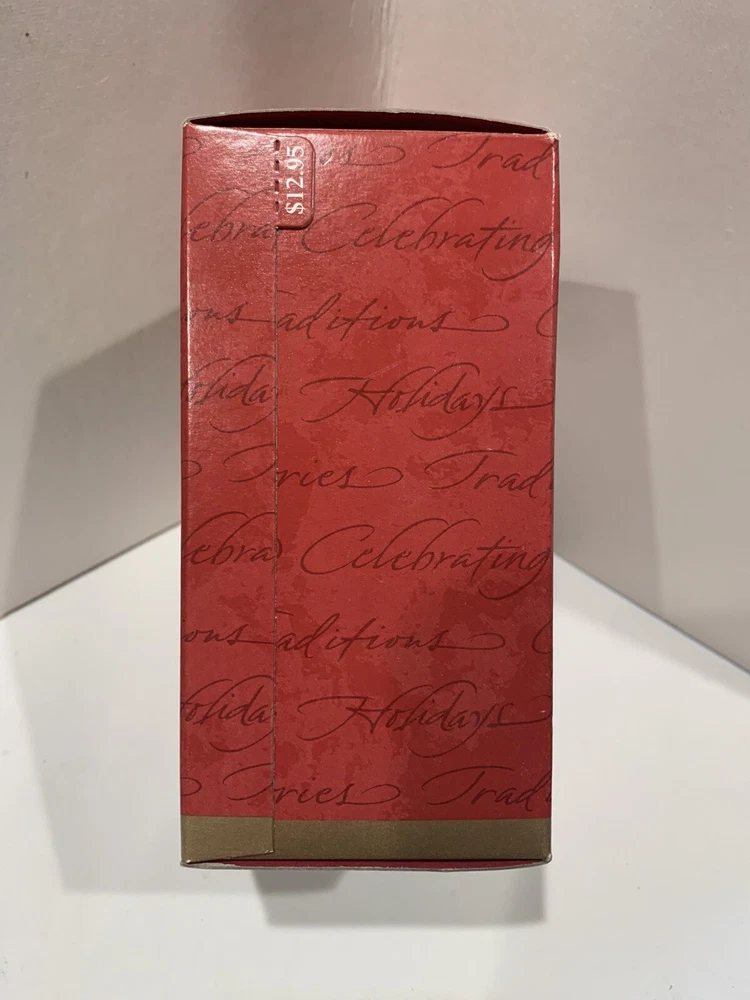 $12.95
Trad
ebra Celebrating
ons aditions
olida Holidays
ries Trad
ebra Celebrating
ons aditions
olida Holidays
ries Trad